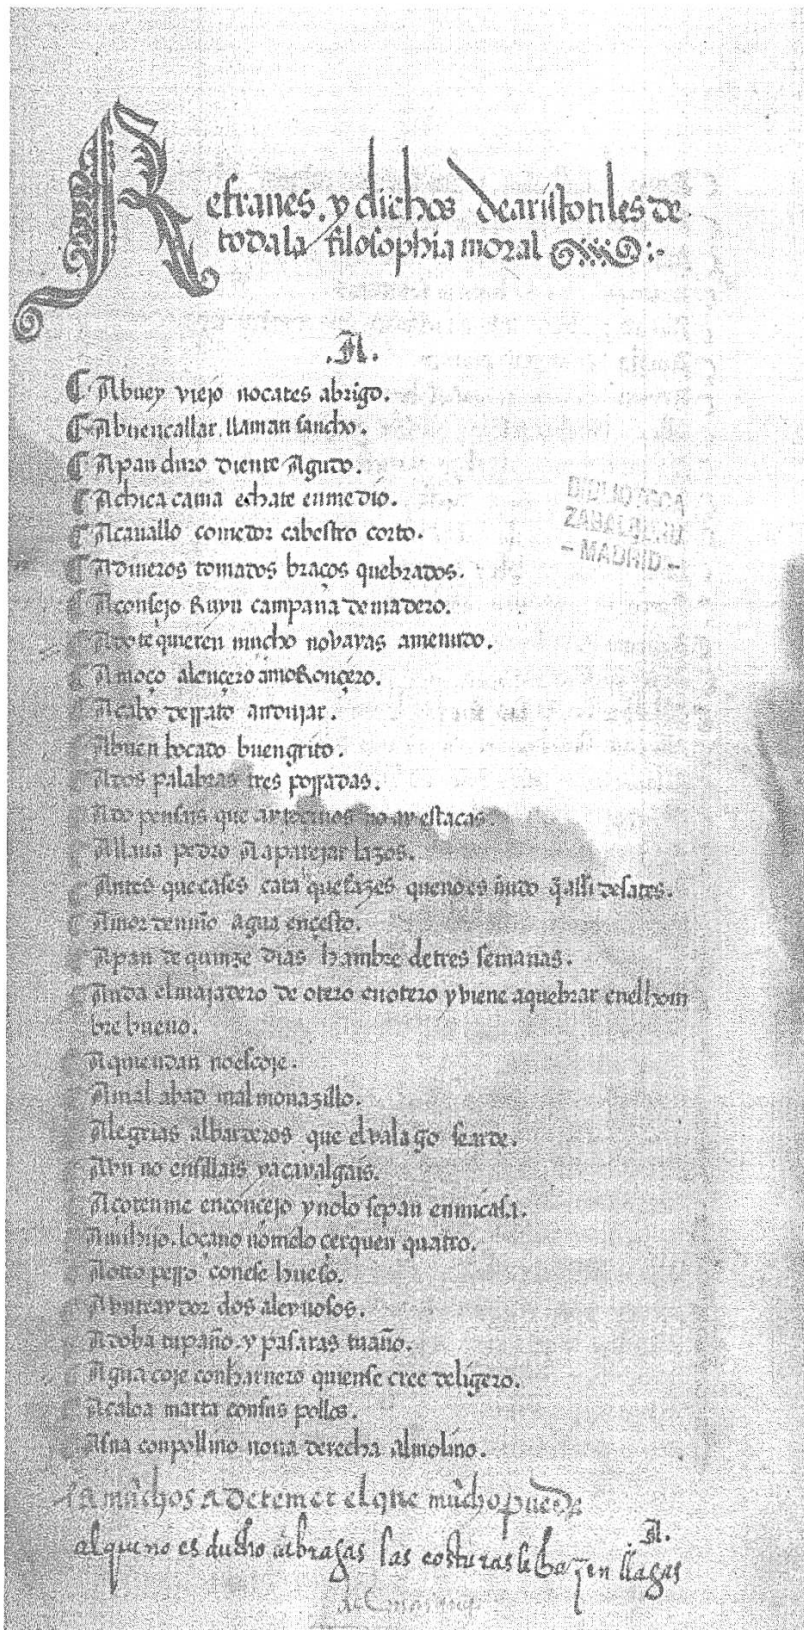 Refranes. y dichos de aristotiles de
toda la filosophia moral
.A.
A buey viejo no cates abrigo.
A buen callar. llaman sancho.
A pan duro diente Agudo.
A chica cama echate en medio.
A cavallo comedor cabestro corto.
A dineros tomados braços quebrados.
A consejo Ruyn campana de madero.
A do te quieren mucho no vayas a menudo.
A moço alençero amo Ronçero.
A cabo de rrato
A buen bocado buen grito.
A dos palabras tres porradas.
A do pensays que ay tocinos no ay estacas.
Alla va pedro A aparejar lazos.
Antes que cases cata que fazes que no es ñudo q̃ assi desates.
Amor de niño agua en çesto.
A pan de quinze dias hambre de tres semanas.
Anda el majadero de otero en otero y viene a quebrar en el hom
bre bueno.
A quien dan no escoje.
A mal abad mal monazillo.
Alegrias albarderos que el valago se arde.
Avn no ensillais ya cavalgais.
Açotenme en concejo y no lo sepan en mi casa.
A mi hijo. loçano no me lo cerquen quatro.
A otro perro con ese hueso.
A vn traydor dos alevosos.
Adoba tu paño. y pasaras tu año.
Agua coje con harnero quien se cree de ligero.
Acaloa marta con sus pollos.
Asna con pollino no va derecha al molino.
A muchos A de temer el que mucho puede
.A.
al que no es ducho a bragas las costuras le hazen llagas
BIBLIOTECA
ZABALBURU
- MADRID -